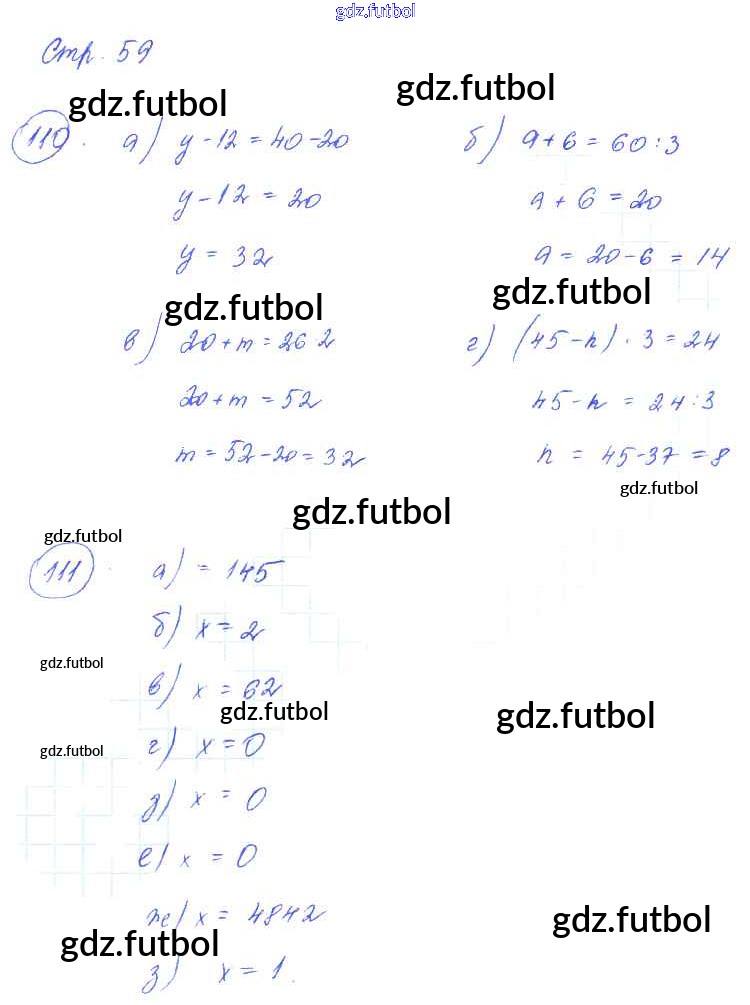 gdz.futbol
Стр. 59
gdz.futbol gdz.futbol
110. а) y - 12 = 40 - 20 б) a + 6 = 60 : 3
y - 12 = 20 a + 6 = 20
y = 32 a = 20 - 6 = 14
gdz.futbol gdz.futbol
в) 20 + m = 26 · 2 г) (45 - n) · 3 = 24
20 + m = 52 45 - n = 24 : 3
m = 52 - 20 = 32 n = 45 - 37 = 8
gdz.futbol
gdz.futbol
gdz.futbol
111. а) = 145
б) x = 2
gdz.futbol
в) x = 62
gdz.futbol gdz.futbol
gdz.futbol г) x = 0
д) x = 0
е) x = 0
ж) x = 4842
gdz.futbol gdz.futbol
з) x = 1.